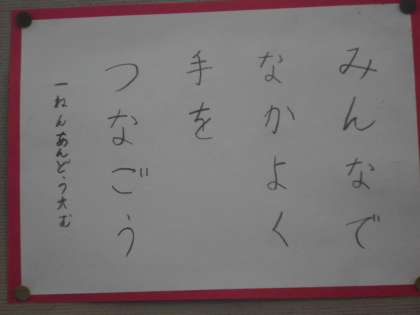 みんなで
なかよく
手を
つなごう
一ねんあんどう大む